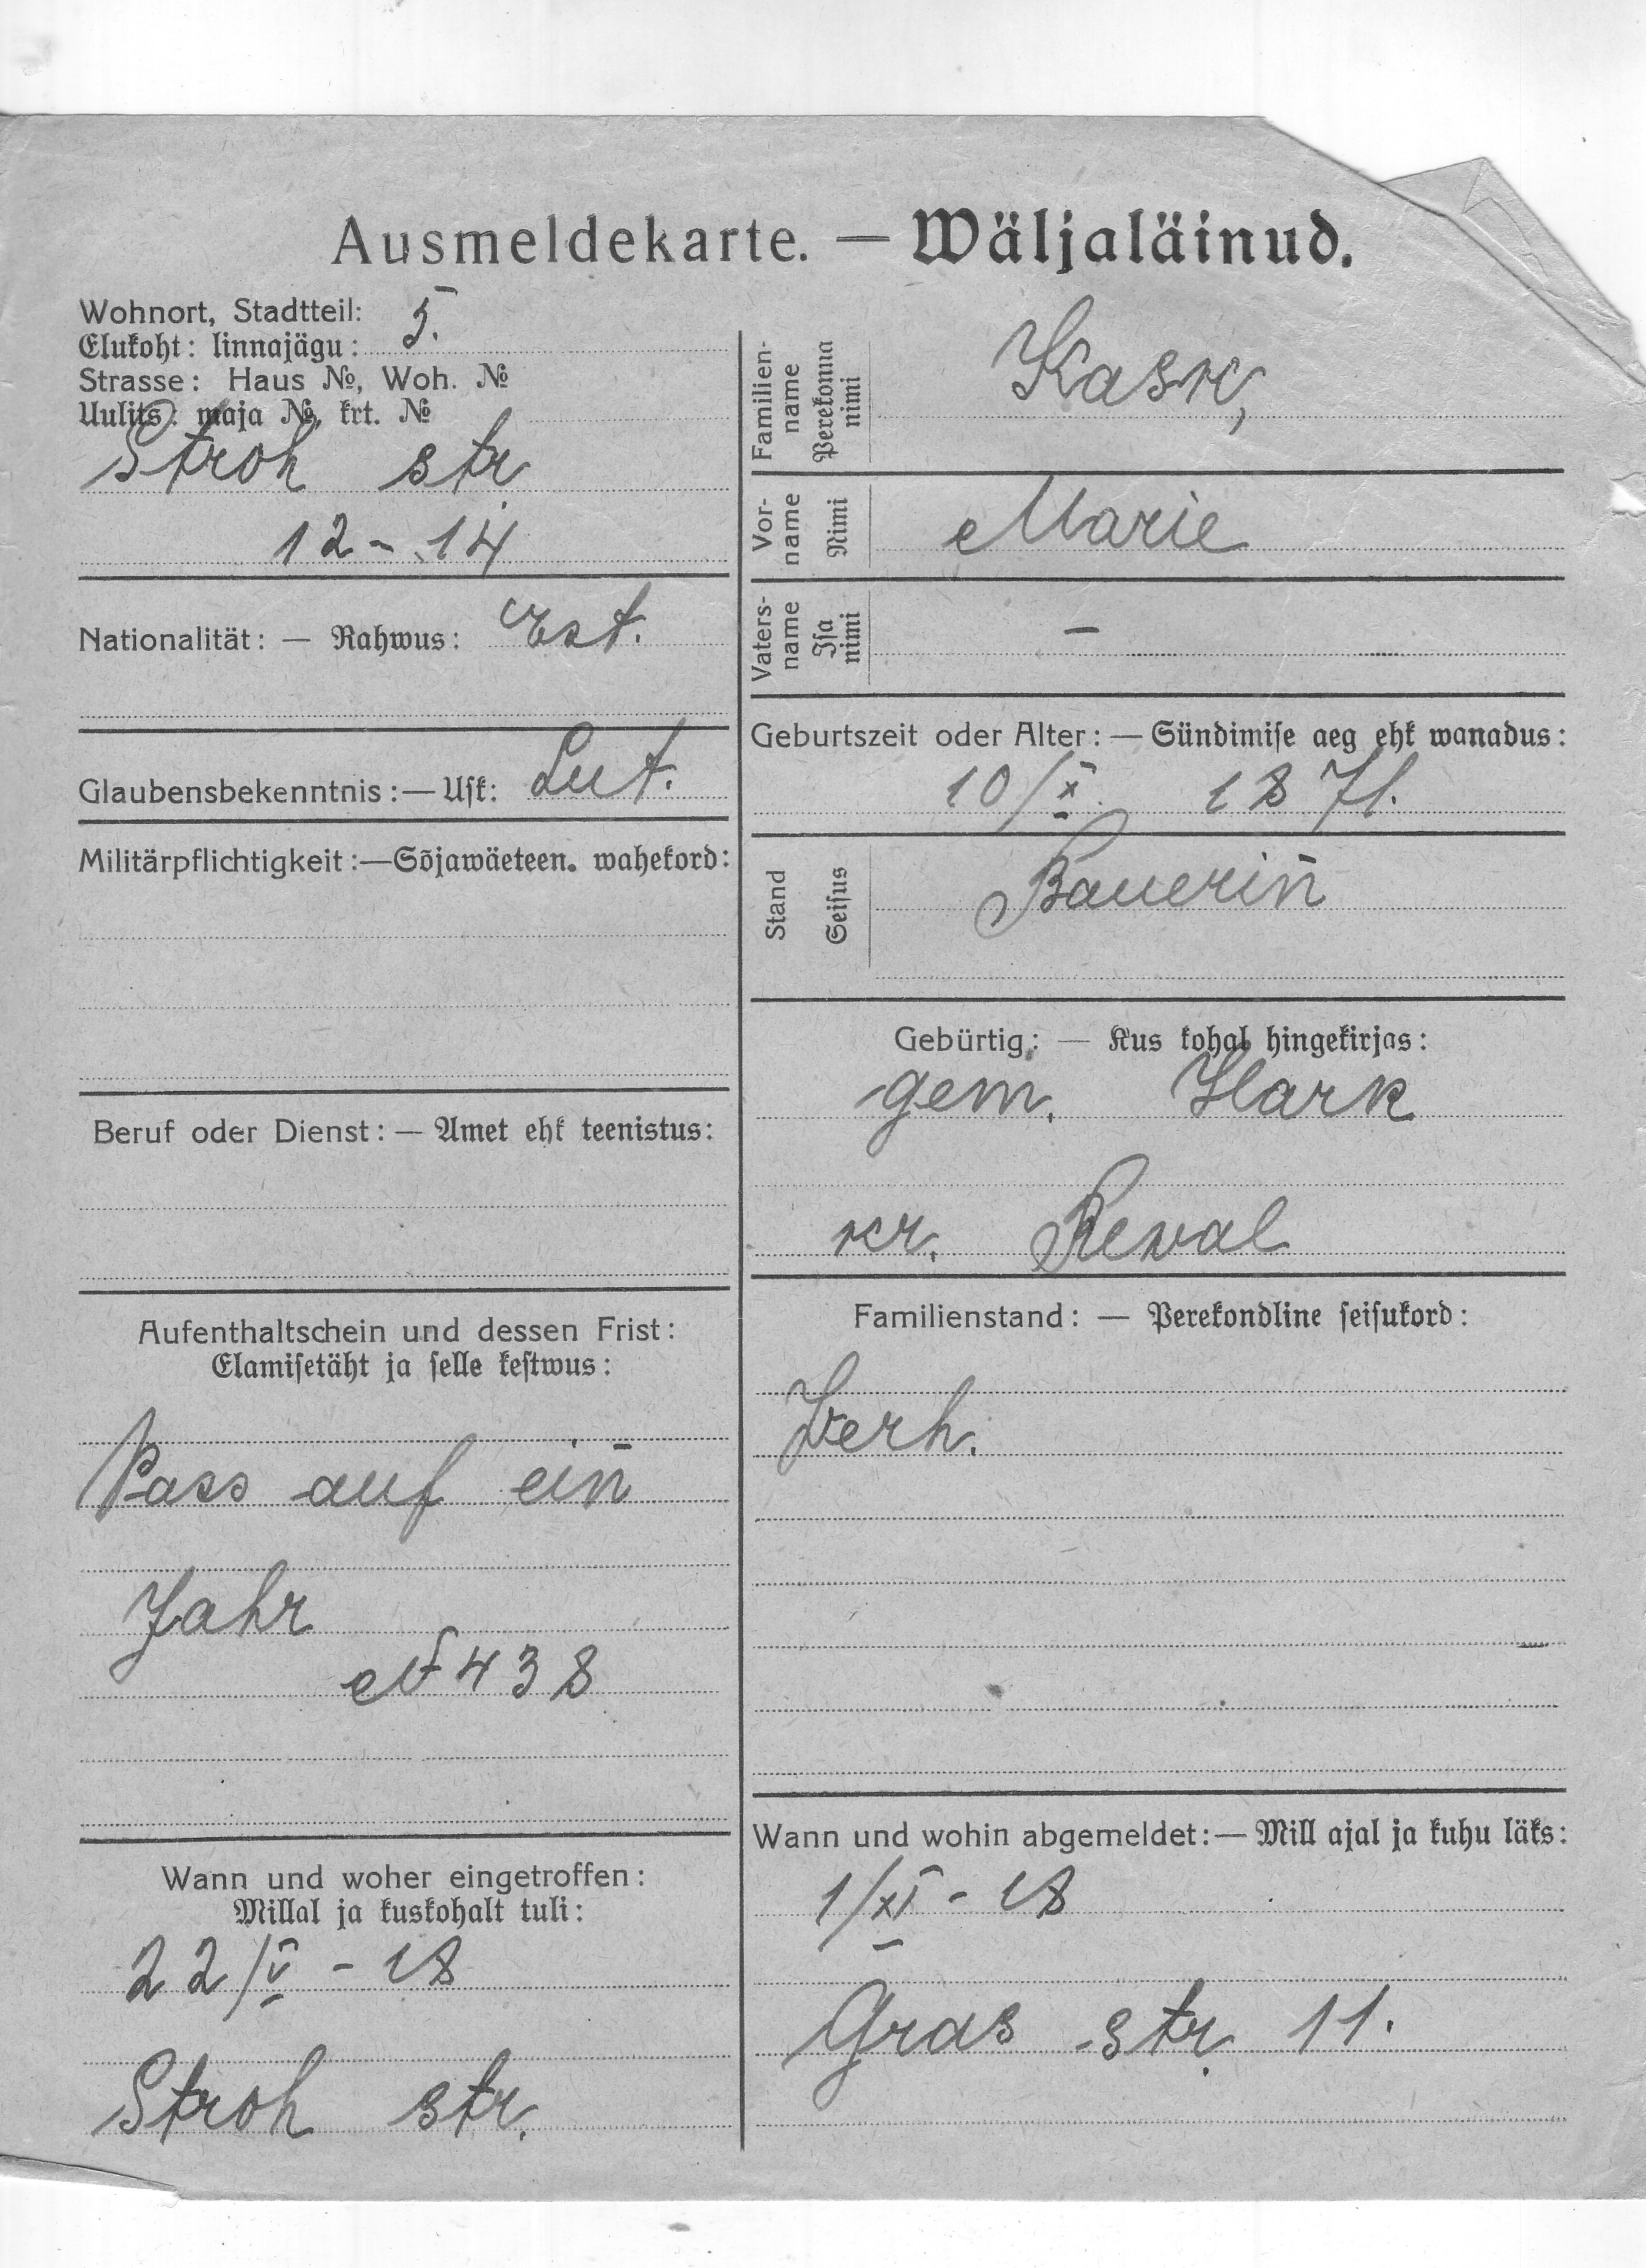 Ausmeldekarte. — Wäljaläinud.
Wohnort, Stadtteil: 5.
Elukoht: linnajägu:
Strasse: Haus №, Woh. №
Uulits: maja №, krt. №
Stroh str
12 - 14
Nationalität: — Rahwus: Est.
Glaubensbekenntnis: — Usk: Lut.
Militärpflichtigkeit: — Sõjawäeteen. wahekord:
Beruf oder Dienst: — Amet ehk teenistus:
Aufenthaltschein und dessen Frist:
Elamisetäht ja selle kestwus:
Pass auf ein̄
Jahr
№ 438
Wann und woher eingetroffen:
Millal ja kuskohalt tuli:
22/V - 18
Stroh str.
Familien-
name
Perekonna
nimi
Kask,
Vor-
name
Nimi
Marie
Vaters-
name
Isa
nimi
—
Geburtszeit oder Alter: — Sündimise aeg ehk wanadus:
10/X. 187l.
Stand
Seisus
Bauerin̄
Gebürtig: — Kus kohal hingekirjas:
gem. Hark
kr. Reval
Familienstand: — Perekondline seisukord:
Verh.
Wann und wohin abgemeldet: — Mill ajal ja kuhu läks:
1/XI - 18
Gras str. 11.